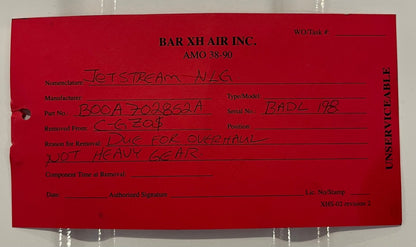 WO/Task #
BAR XH AIR INC.
AMO 38-90
Nomenclature JETSTREAM NLG
Manufacturer Type/Model
Part No. B00A702862A Serial No. BADL 198
Removed From C-GZOS Position
Reason for Removal DUE FOR OVERHAUL
NOT HEAVY GEAR
Component Time at Removal:
Date Authorized Signature Lic. No/Stamp
XHS-02 revision 2
UNSERVICEABLE